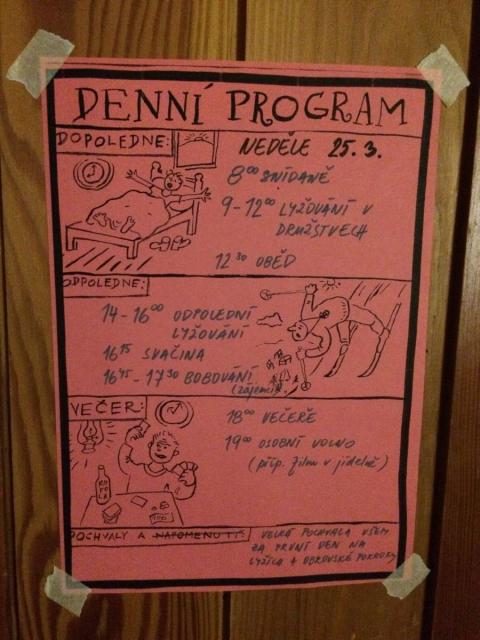 DENNÍ PROGRAM
DOPOLEDNE:
NEDĚLE 25.3.
8⁰⁰ SNÍDANĚ
9-12⁰⁰ LYŽOVÁNÍ V
DRUŽSTVECH
12³⁰ OBĚD
ODPOLEDNE:
14-16⁰⁰ ODPOLEDNÍ
LYŽOVÁNÍ
16¹⁵ SVAČINA
16⁴⁵-17³⁰ BOBOVÁNÍ
(zájemci)
VEČER:
18⁰⁰ VEČEŘE
19⁰⁰ OSOBNÍ VOLNO
(příp. film v jídelně)
KOFOLA
POCHVALY A NAPOMENUTÍ:
VELKÁ POCHVALA VŠEM
ZA PRVNÍ DEN NA
LYŽÍCH + OBROVSKÉ POKROKY